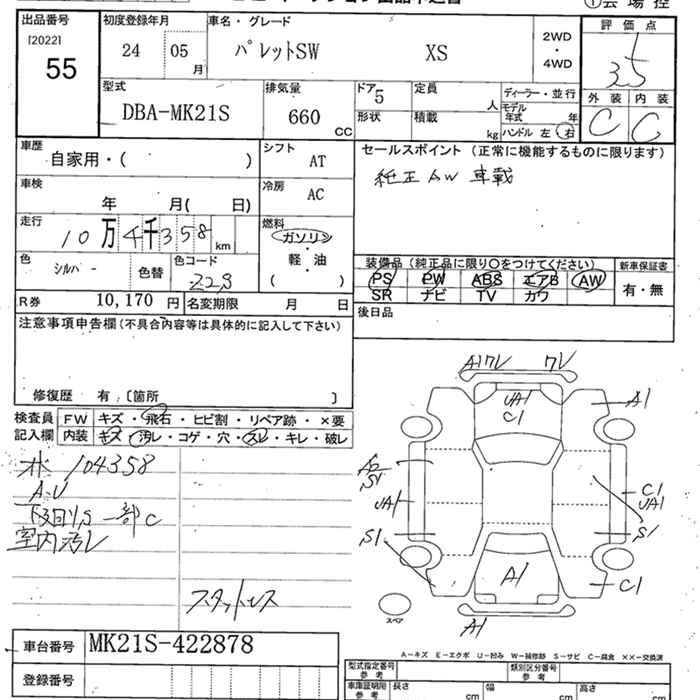 出品番号 初度登録年月 車名・グレード 評価点
[2022] 24 05 月 パレットSW XS 2WD ・ 4WD 3.5
55
外装 内装
C C
型式 排気量 ドア 5 定員 人 ディーラー・並行
DBA-MK21S 660 CC 形状 積載 kg モデル年式 年
ハンドル 左 右
車歴 自家用・( ) シフト AT セールスポイント (正常に機能するものに限ります)
純正AW 車載
車検 年 月( 日) 冷房 AC
走行 10万4千358km 燃料 ガソリン
軽・油
( )
色 シルバー 色替 色コード Z2S
装備品 (純正品に限り〇をつけてください) 新車保証書
PS PW ABS エアB AW 有・無
SR ナビ TV カワ
R券 10,170 円 名変期限 月 日 後日品
注意事項申告欄(不具合内容等は具体的に記入して下さい)
修復歴 有 〔箇所 〕
検査員 FW キズ・飛石・ヒビ割・リペア跡・×要
記入欄 内装 キズ・汚レ・コゲ・穴・スレ・キレ・破レ
104358
一部C
室内汚レ
スタットレス
A17V 7V
UA1
C1
A1
S1
UA1
C1
UA1
S1
S1
C1
A1
A1
スペア
A-キズ E-エクボ U-凹み W-補修跡 S-サビ C-腐食 ××-交換済
車台番号 MK21S-422878
登録番号
型式指定番号 参考 類別区分番号 参考
車庫証明用 参考 長さ cm 幅 cm 高さ cm